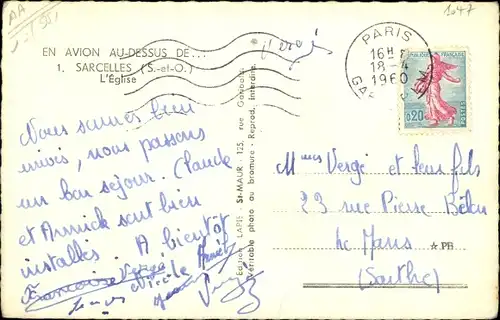 AA
1047
EN AVION AU-DESSUS DE...
1. SARCELLES (S.-et-O.)
L'Église
PARIS
16H
18-4
1960
GA
REPUBLIQUE FRANÇAISE
0,20
POSTES
Editions LAPIE, St-MAUR - 125, rue Garibaldi
Véritable photo au bromure - Reprod. Interdite
Nous sommes bien
, nous passons
un bon séjour. Claude
et Annick sont bien
installés. A bientôt
Françoise Vergé
Nicole
Mmes Vergé et leur fils
23 rue Pierre Belon
Le Mans
★ PB
(Sarthe)